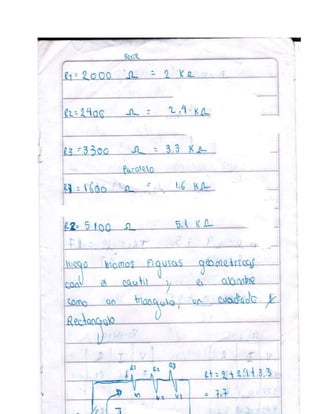 Serie
R1 = 2000 Ω = 2 KΩ
R2 = 2400 Ω = 2,4 KΩ
R3 = 3300 Ω = 3.3 KΩ
Paralelo
R1 = 1600 Ω = 1.6 KΩ
R2 = 5100 Ω 5.1 KΩ
luego hicimos Figuras geometricas
con el cautil y el alambre
como un triangulo, un cuadrado y
Rectangulo
R1 R2 R3
Rt = 2+2.4+3.3
= 7.7
V1 V2 V3
I